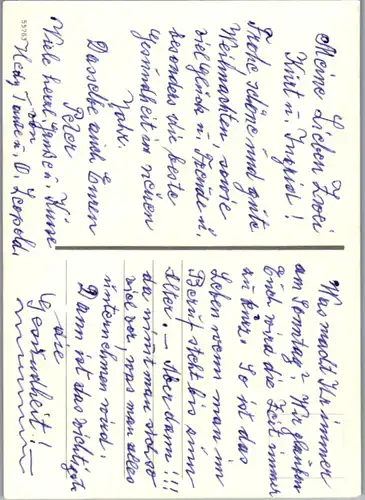 Meine Lieben Zwei
Kurt u. Ingrid!
Frohe schöne und gute
Weihnachten, sowie
viel Glück u. Freude u.
besonders die beste
Gesundheit im neuen
Jahr.
Dasselbe auch Euren
Peter
Viele herzl. Grüße u. Küsse
von
Hedy Tante u. O. Leopold.
Was macht Ihr immer
am Sonntag? Wir glauben
Euch wird die Zeit immer
zu kurz. So ist das
Leben wenn man im
Beruf steht bis zum
Alter. – Aber dann!!!
da nimmt man sich so
viel vor, was man alles
unternehmen wird.
Dann ist das wichtigste
die
Gesundheit! –